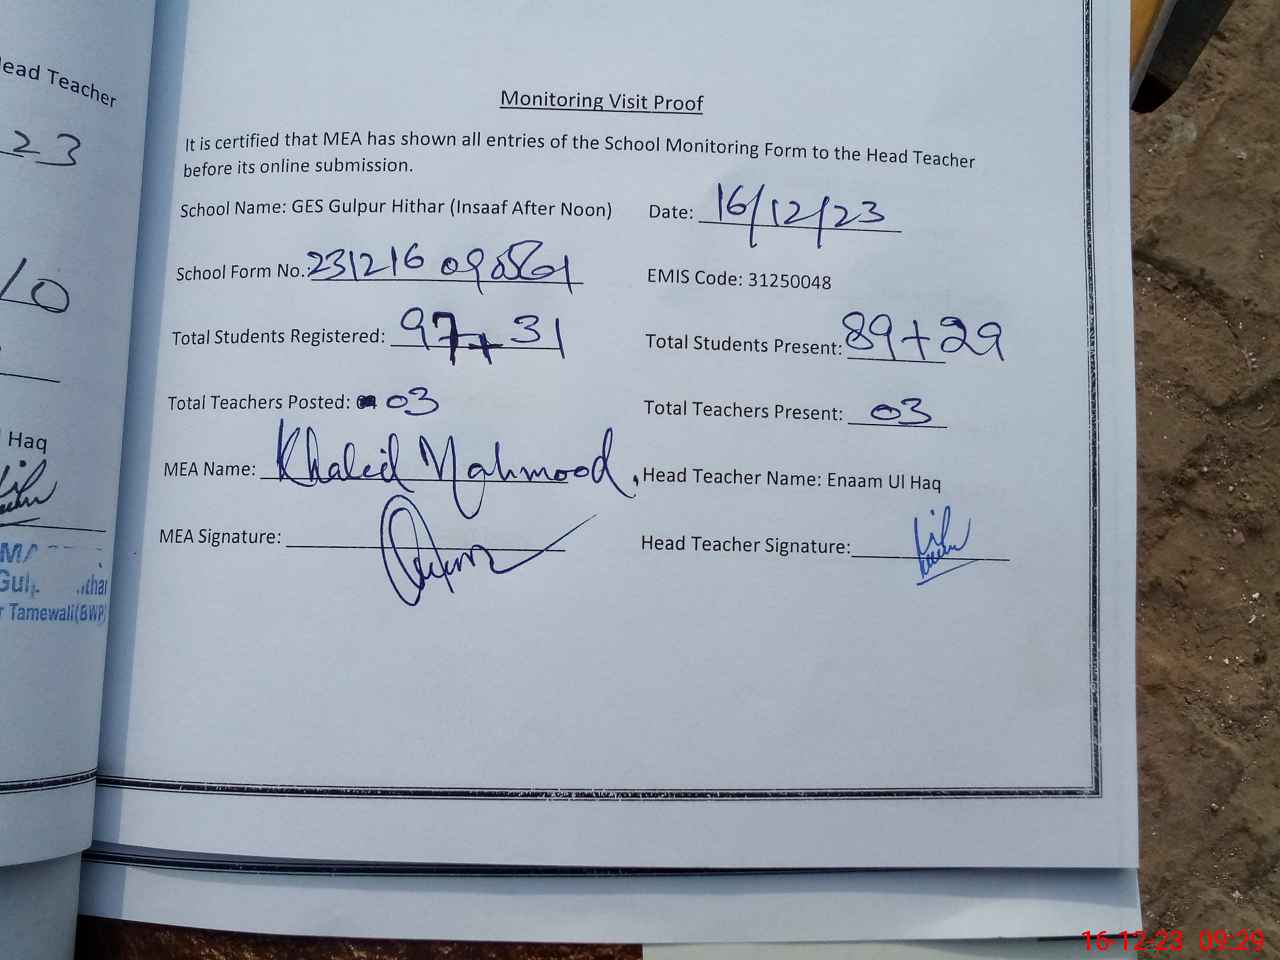 Head Teacher
23
10
Haq
Tamewali(BWP)
Monitoring Visit Proof
It is certified that MEA has shown all entries of the School Monitoring Form to the Head Teacher
before its online submission.
School Name: GES Gulpur Hithar (Insaaf After Noon) Date: 16/12/23
School Form No. 231216 EMIS Code: 31250048
Total Students Registered: 97+31 Total Students Present: 89+29
Total Teachers Posted: 03 Total Teachers Present: 03
MEA Name: Khalid Mahmood, Head Teacher Name: Enaam Ul Haq
MEA Signature: Head Teacher Signature:
16-12-23 09:29